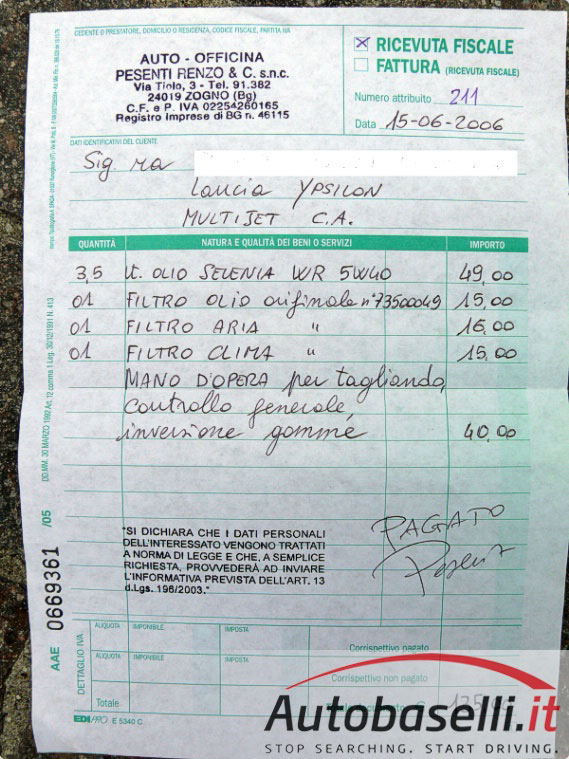 CEDENTE O PRESTATORE, DOMICILIO O RESIDENZA, CODICE FISCALE, PARTITA IVA
AUTO - OFFICINA
PESENTI RENZO & C. s.n.c.
Via Tiolo, 3 - Tel. 91.382
24019 ZOGNO (Bg)
C.F. e P. IVA 02254260165
Registro Imprese di BG n. 46115
RICEVUTA FISCALE
FATTURA (RICEVUTA FISCALE)
Numero attribuito 211
Data 15-06-2006
DATI IDENTIFICATIVI DEL CLIENTE
Sig.ra
Lancia YPSILON
MULTIJET C.A.
QUANTITÀ NATURA E QUALITÀ DEI BENI O SERVIZI IMPORTO
3,5 lt. OLIO SELENIA WR 5W40 49,00
01 FILTRO OLIO originale n°73500049 15,00
01 FILTRO ARIA " 16,00
01 FILTRO CLIMA " 15,00
MANO D'OPERA per tagliando,
controllo generale,
inversione gomme 40,00
PAGATO
"SI DICHIARA CHE I DATI PERSONALI
DELL'INTERESSATO VENGONO TRATTATI
A NORMA DI LEGGE E CHE, A SEMPLICE
RICHIESTA, PROVVEDERÀ AD INVIARE
L'INFORMATIVA PREVISTA DELL'ART. 13
d.Lgs. 196/2003."
DD.MM. 30 MARZO 1992 Art. 12 comma 1 Leg. 30/12/1991 N. 413
AAE 0669361 /05
DETTAGLIO IVA
ALIQUOTA IMPONIBILE IMPOSTA
Corrispettivo pagato
ALIQUOTA IMPONIBILE IMPOSTA
Corrispettivo non pagato
Totale
EDIPRO E 5340 C
Autobaselli.it
STOP SEARCHING. START DRIVING.